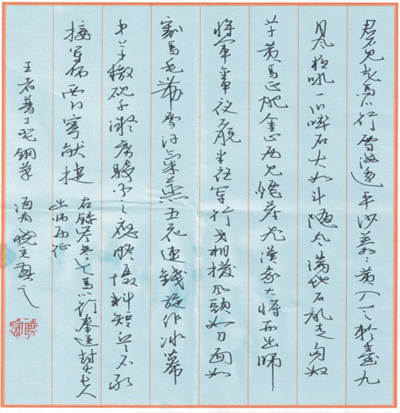 君不见走马川行雪海边平沙莽莽黄入天轮台九
月风夜吼一川碎石大如斗随风满地石乱走匈奴
草黄马正肥金山西见烟尘飞汉家大将西出师
将军金甲夜不脱半夜军行戈相拨风头如刀面如
割马毛带雪汗气蒸五花连钱旋作冰幕
中草檄砚水凝虏骑闻之应胆慑料知短兵不敢
接军师西门伫献捷
右录岑参走马川行奉送封大夫
出师西征
钢笔